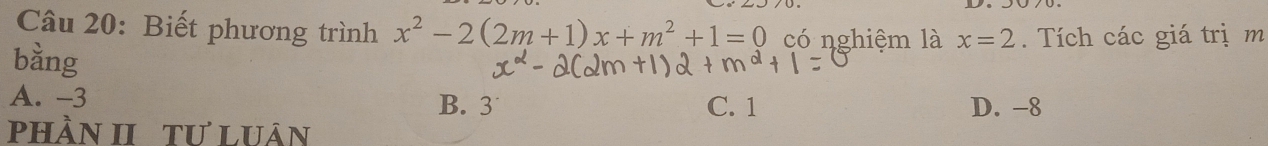 Câu 20: Biết phương trình x² − 2(2m+1)x + m² + 1 = 0 có nghiệm là x = 2. Tích các giá trị m
bằng
x² - 2(2m+1)2 + m² + 1 = 0
A. −3 B. 3 C. 1 D. −8
PHẦN II TỰ LUẬN